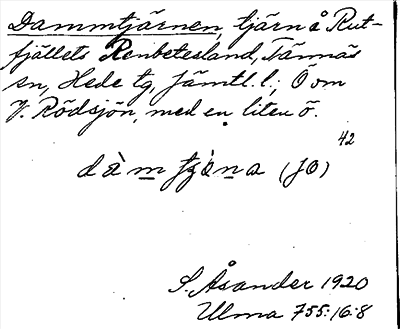 Dammtjärnen, tjärn å Rut-
fjällets Renbetesland, Tännäs
sn, Hede tg, Jämtl. l.; O om
V. Rödsjön, med en liten ö.
42
dàm tjäna (JO)
S. Åsander 1920
Ulma 755:16:8